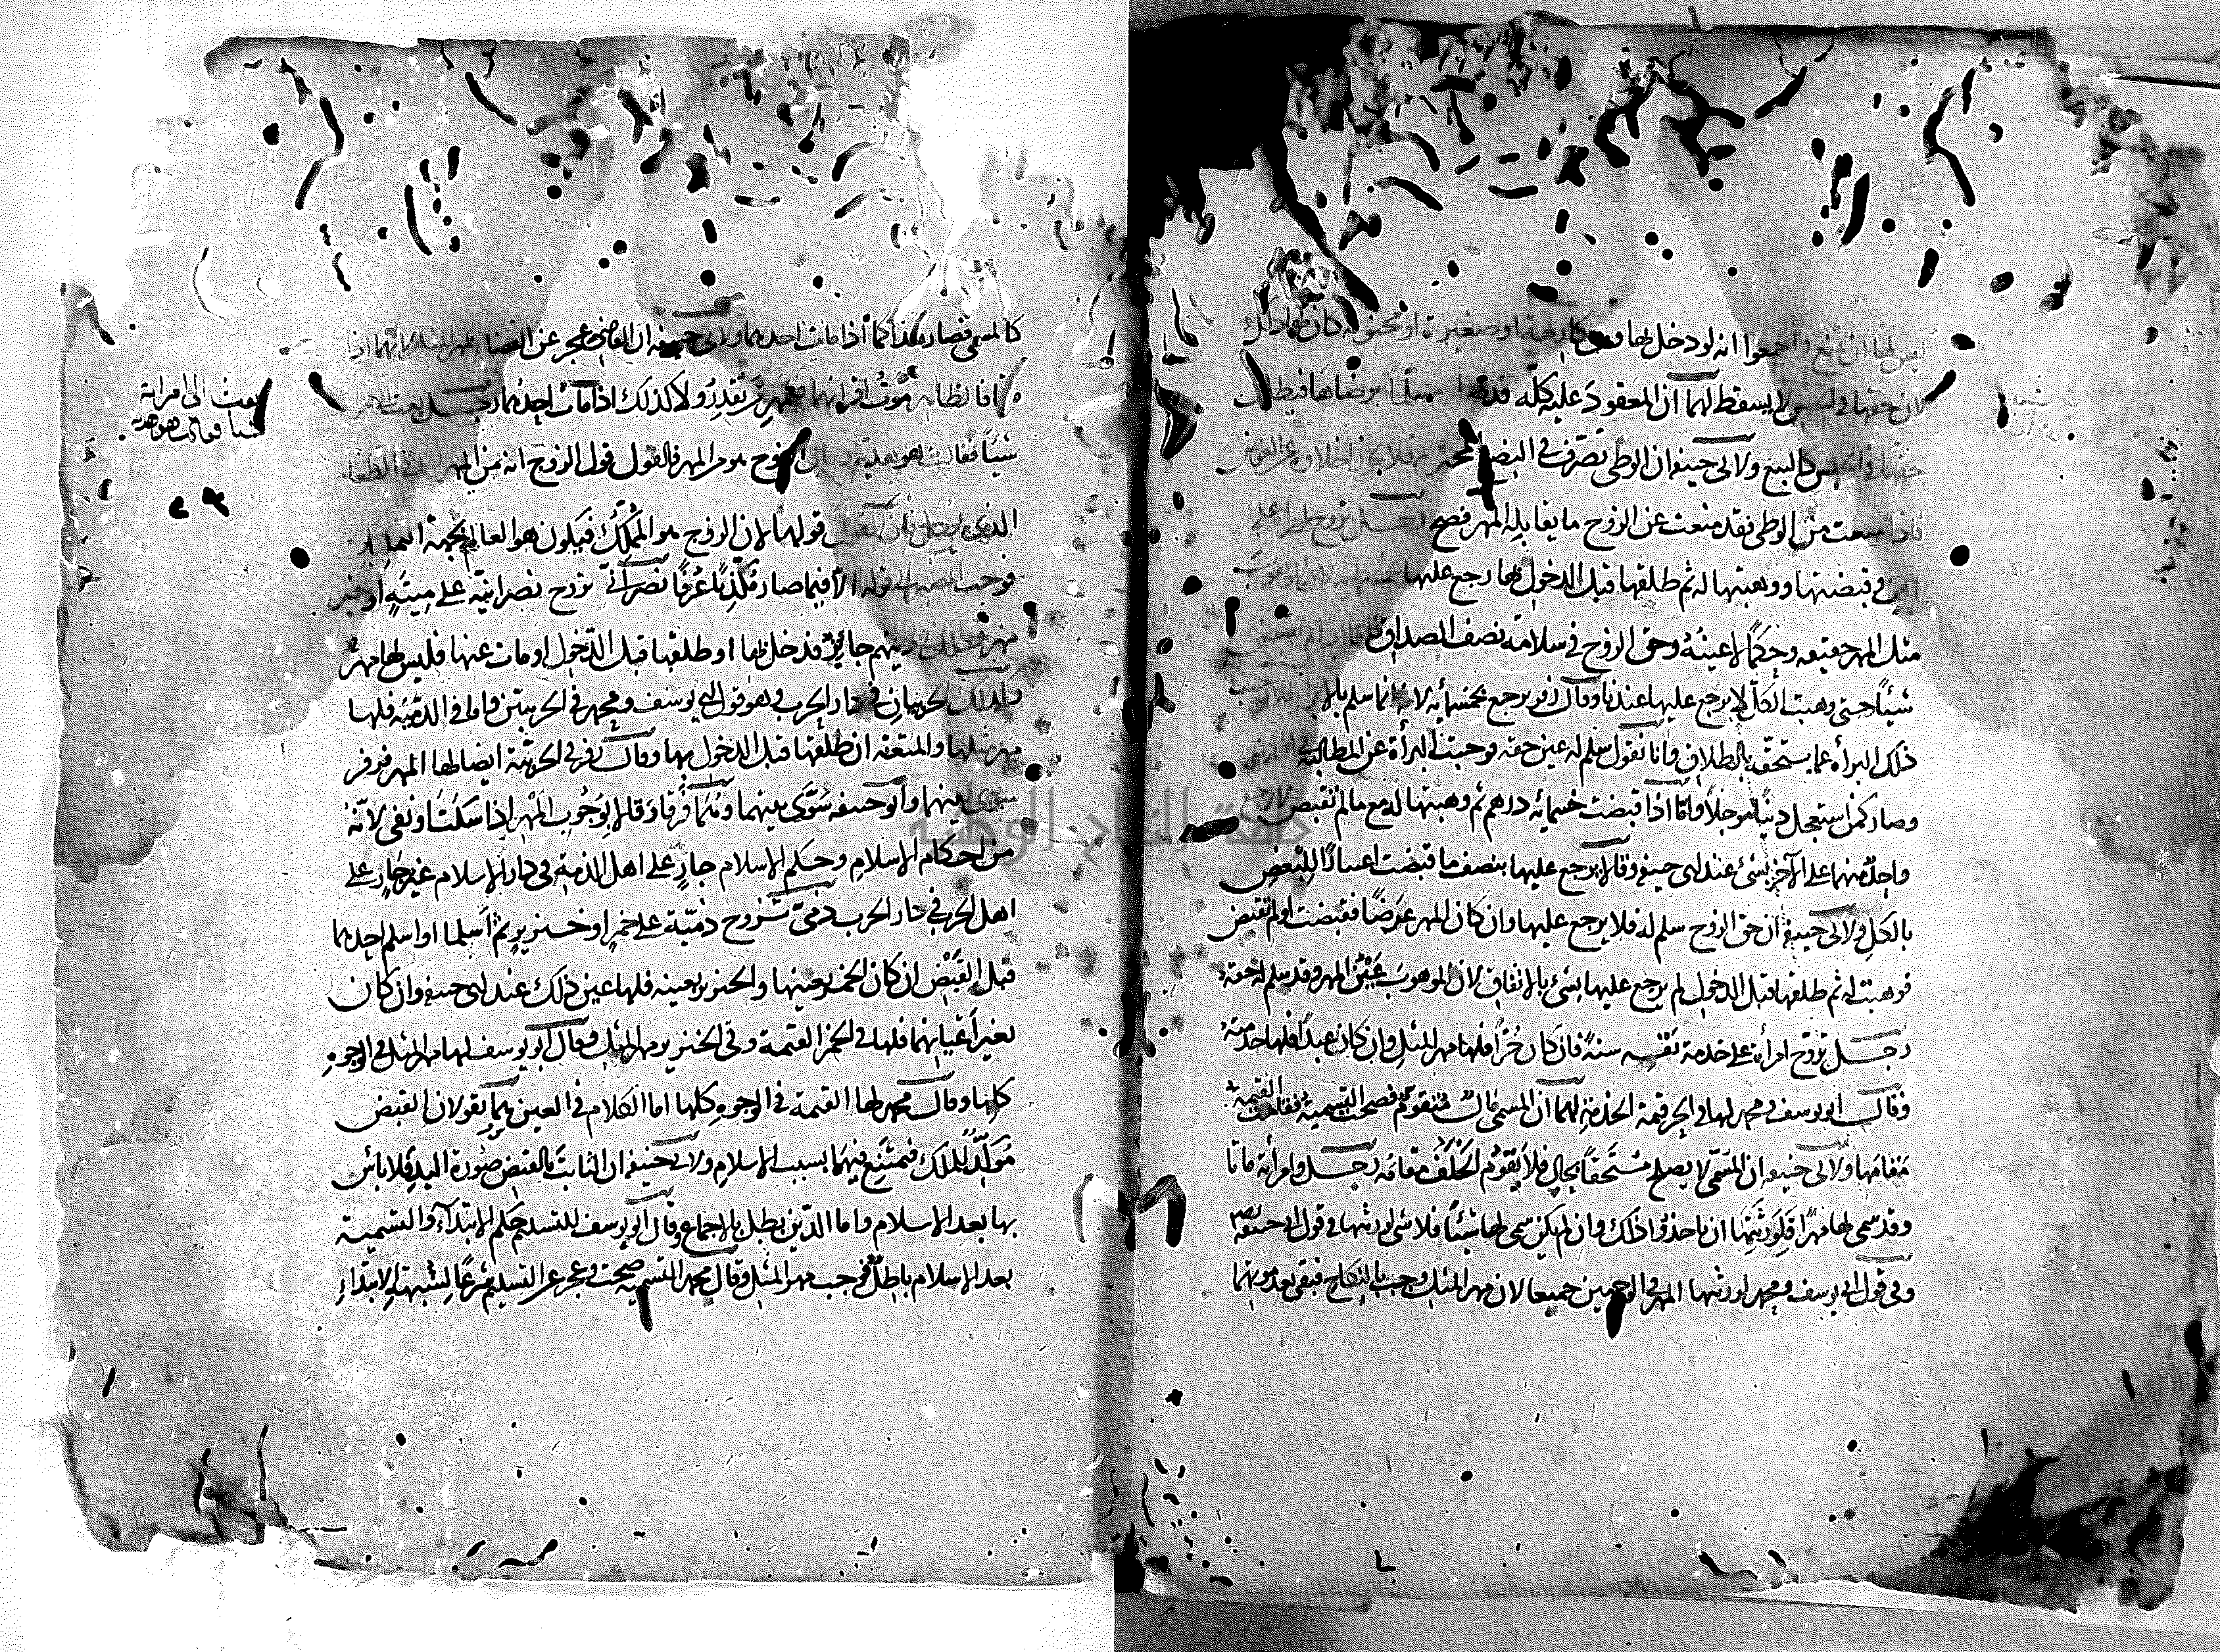 ليس لها ان تمنع واجمعوا انه لو دخل بها وهي كارهة او صغيرة او مجنونة كان لها ذلك
لان حقها في الحبس لا يسقط لهما ان المعقود عليه كله قد صار مسلما برضاها فبطل
حقها في الحبس كالبيع ولابى حنيفه ان الوطى تصرف في البضع المحترم فلا يجوز اخلاؤه عن العوض
فاذا منعت من الوطى فقد منعت عن الزوج ما يقابله المهر فصح رجل تزوج امرأة على
الف فقبضتها ووهبتها له ثم طلقها قبل الدخول بها رجع عليها بخمسمائة لان الموهوب
مثل المهر حقيقه وحكما لا عينه وحق الزوج في سلامة نصف الصداق فاما اذا لم تقبض
شيئا حتى وهبت الكل لا يرجع عليها عندنا وقال زفر يرجع بخمسمائه لانه انما سلم بالابراء
ذلك البراه عما يستحق بالطلاق وانا نقول سلم له عين حقه وحبت البراة عن المطالبة
وصار كمن استعجل دينا مؤجلا واما اذا قبضت خمسمائه درهم ثم وهبتها له مع ما لم تقبض لا يرجع
واحد منهما على الآخر بشئ عند ابى حنيفه وقالا يرجع عليها بنصف ما قبضت اعتبارا للبعض
بالكل ولابى حنيفه ان حق الزوج سلم له فلا يرجع عليها وان كان المهر عرضا فقبضت او لم تقبض
فوهبت له ثم طلقها قبل الدخول لم يرجع عليها بشئ بالاتفاق لان الموهوب عين المهر وقد سلم له حقه
رجل تزوج امرأة على خدمة نفسه سنة فان كان حرا فلها مهر المثل وان كان عبدا فلها خدمته
وقال ابو يوسف ومحمد لها في الحر قيمة الخدمة لهما ان المسمى مال متقوم فصحت التسمية فقامت القيمة
مقامها ولابى حنيفه ان المسمى لا يصلح مستحقا بحال فلا يقوم الخلف مقامه رجل وامرأته ماتا
وقد سمى لها مهرا فلورثتها ان ياخذوا ذلك وان لم يكن سمى لها شيئا فلا شى لورثتها في قول ابى حنيفه
وفي قول ابى يوسف ومحمد لورثتها المهر في الوجهين جميعا لان مهر المثل وجب بالنكاح فبقى بعد موتهما
كالمسمى فصار هذا كما اذا مات احدهما ولابى حنيفه ان القاضى عجز عن القضاء بمهر المثل لانهما اذا
موت اقرانهما فبمهر من تقدر ولا كذلك اذا مات احدهما رجل بعث الى امرأته
شيئا فقالت هو هدية وقال الزوج هو من المهر فالقول قول الزوج انه من المهر الا في الطعام
الذي يوكل فان القول قولها لان الزوج هو المملك فيكون هو العالم بجهة التمليك
فوجب المصير الى قوله الا فيما صار مكذبا عرفا نصرانى تزوج نصرانية على ميتة او بغير
مهر وذلك في دينهم جائز فدخل بها او طلقها قبل الدخول او مات عنها فليس لها مهر
وكذلك الحربيان في دار الحرب وهو قول ابى يوسف ومحمد في الحربيتين واما في الذميه فلها
مهر مثلها والمتعة ان طلقها قبل الدخول بها وقال زفر في الحربية ايضا لها المهر فزفر
سوى بينهما وابو حنيفه سوى بينهما وهما فرقا وقالا بوجوب المهر اذا سكتا او نفى لانه
من احكام الاسلام وحكم الاسلام جار على اهل الذمة في دار الاسلام غير جار على
اهل الحرب في دار الحرب ذمى تزوج ذمية على خمر او خنزير ثم اسلما او اسلم احدهما
قبل القبض ان كان الخمر بعينها والخنزير بعينه فلها عين ذلك عند ابى حنيفه وان كان
بغير اعيانهما فلها في الخمر القيمة وفي الخنزير مهر المثل وقال ابو يوسف لها مهر المثل في الوجوه
كلها وقال محمد لها القيمة في الوجوه كلها اما الكلام في العين هما يقولان القبض
مولد للملك فيمتنع فيهما بسبب الاسلام ولابى حنيفه ان الثابت بالقبض صورة اليد فلا باس
بها بعد الاسلام واما الدين بطل بالاجماع وقال ابو يوسف للتسليم حكم الابتداء والتسمية
بعد الاسلام باطل فوجب مهر المثل وقال محمد التسميه صحت وعجز عن التسليم شرعا لشبهة الابتداء
بعث الى امراته
شيا فقالت هو هدية